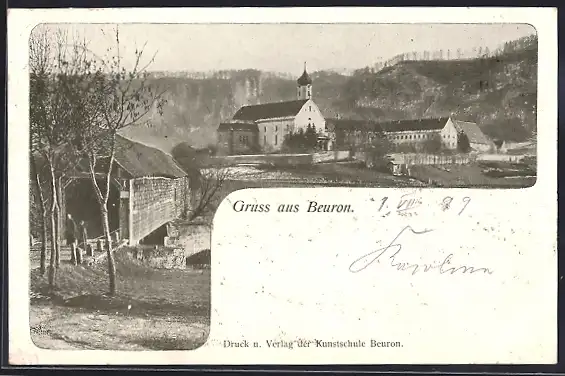 Gruss aus Beuron. 1. VIII 99
Karolina
Druck u. Verlag der Kunstschule Beuron.